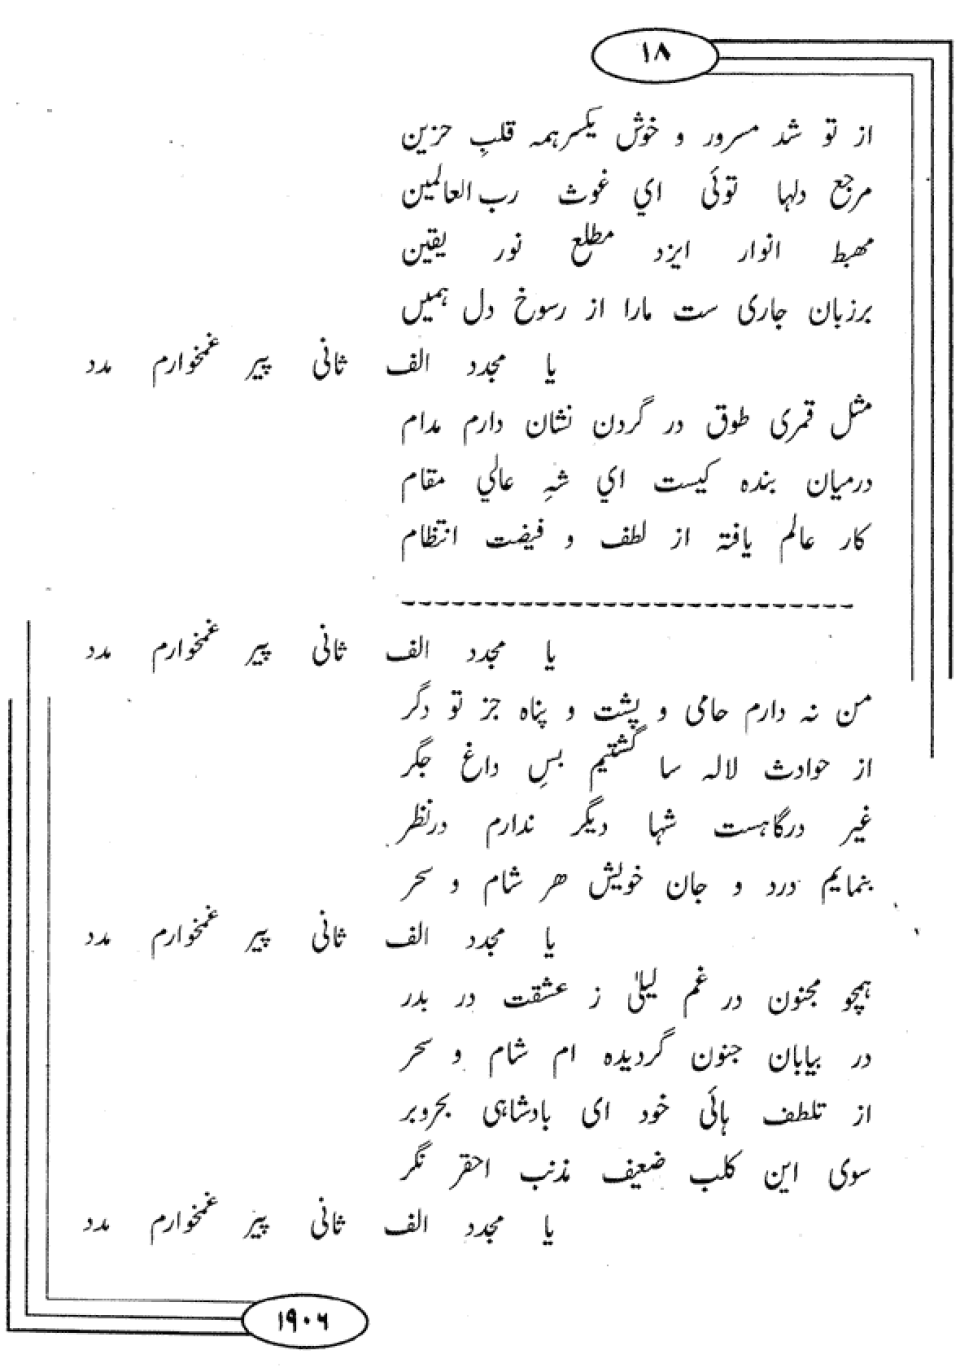 ۱۸
از تو شد مسرور و خوش یکسرہمہ قلبِ حزین
مرجع دلہا توئی اي غوث رب العالمین
مھبط انوار ایزد مطلع نور یقین
برزبان جاری ست مارا از رسوخ دل ہمیں
یا مجدد الف ثانی پیر غمخوارم مدد
مثل قمری طوق در گردن نشان دارم مدام
درمیان بندہ کیست اي شہِ عالي مقام
کار عالم یافتہ از لطف و فیضت انتظام
یا مجدد الف ثانی پیر غمخوارم مدد
من نہ دارم حامی و پشت و پناہ جز تو دگر
از حوادث لالہ سا گشتیم بسِ داغ جگر
غیر درگاہست شہا دیگر ندارم درنظر
بنمایم درد و جان خویش ھر شام و سحر
یا مجدد الف ثانی پیر غمخوارم مدد
ہمچو مجنون در غم لیلیٰ ز عشقت در بدر
در بیابان جنون گردیدہ ام شام و سحر
از تلطف ہائی خود ای بادشاہی بحروبر
سوی این کلب ضعیف مذنب احقر نگر
یا مجدد الف ثانی پیر غمخوارم مدد
۱۹۰۶